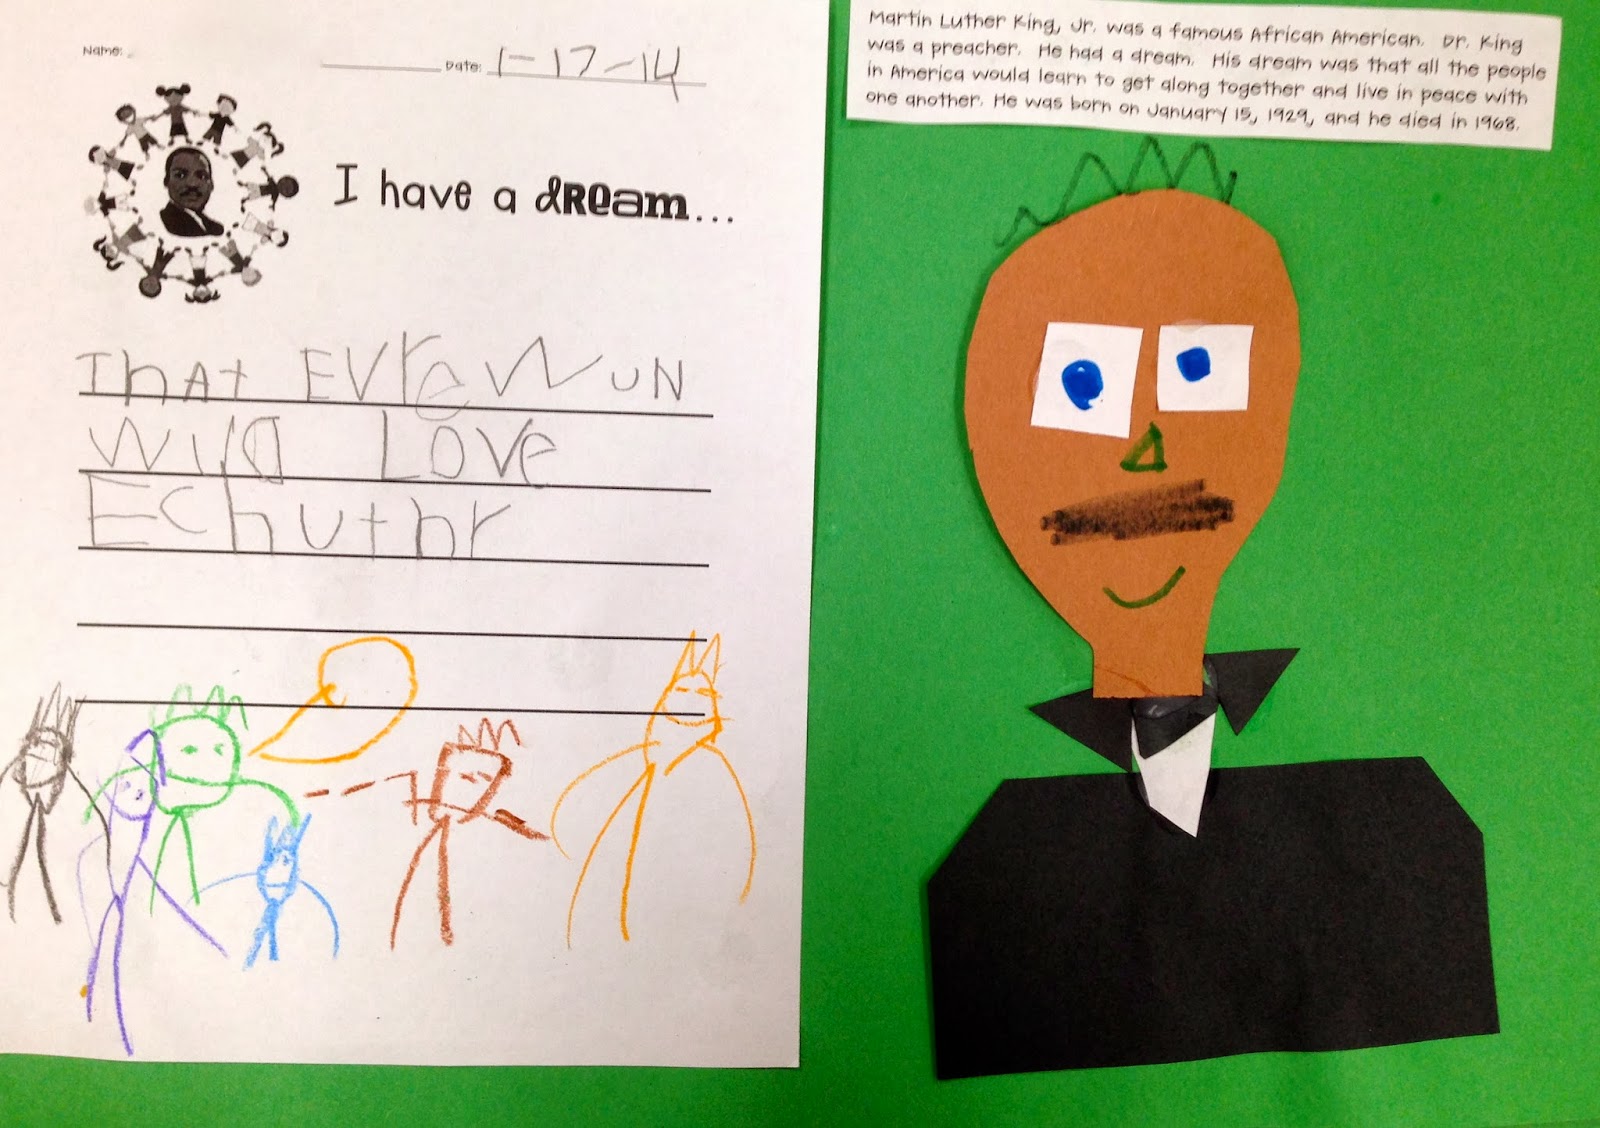 Name:
Date: 1-17-14
I have a dream...
That EVreWUN
Wild Love
Echuthr
Martin Luther King, Jr. was a famous African American. Dr. King
was a preacher. He had a dream. His dream was that all the people
in America would learn to get along together and live in peace with
one another. He was born on January 15, 1929, and he died in 1968.